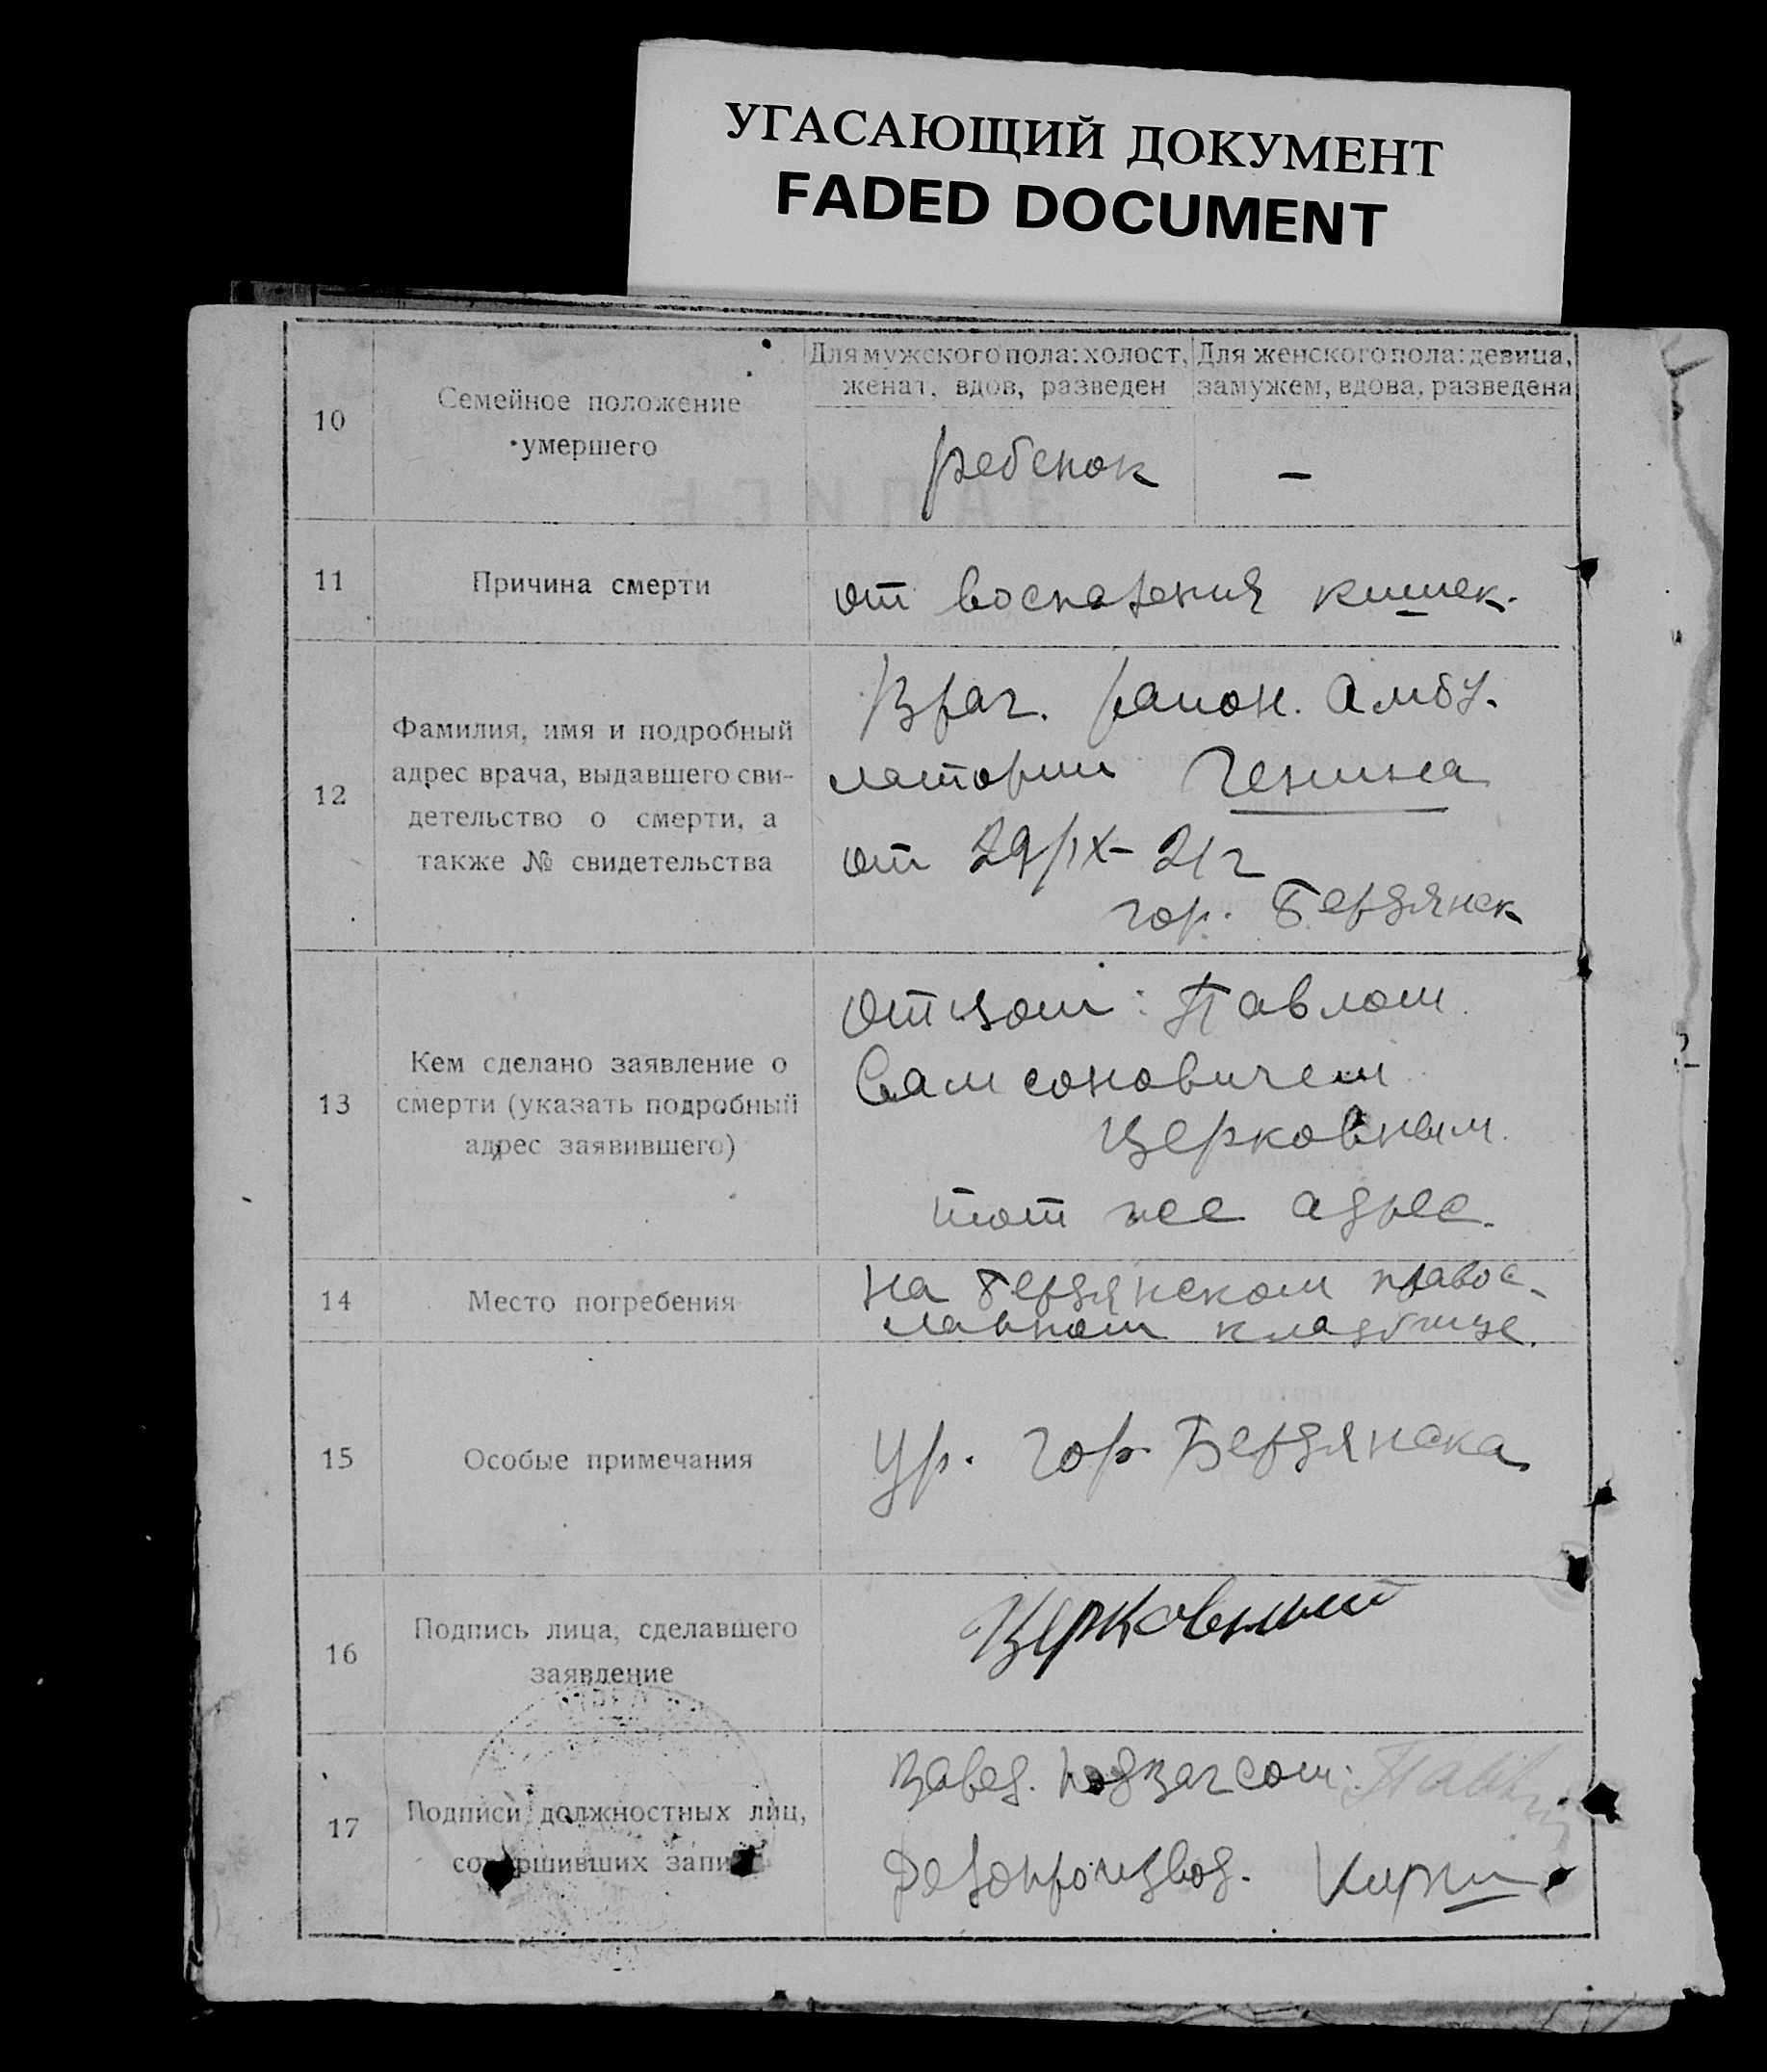 УГАСАЮЩИЙ ДОКУМЕНТ
FADED DOCUMENT
10
Семейное положение
умершего
Для мужского пола: холост,
женат, вдов, разведен
Для женского пола: девица,
замужем, вдова, разведена
ребенок
–
11
Причина смерти
от воспаления кишек.
12
Фамилия, имя и подробный
адрес врача, выдавшего сви-
детельство о смерти, а
также № свидетельства
Врач. район. Амбу.
латории Генина
от 29/IX – 21 г
гор. Бердянск
13
Кем сделано заявление о
смерти (указать подробный
адрес заявившего)
отцом: Павлом
Самсоновичем
Церковным.
тот же адрес.
14
Место погребения
На Бердянском правос-
лавном кладбище.
15
Особые примечания
Ур. гор. Бердянска
16
Подпись лица, сделавшего
заявление
Церковный
17
Подписи должностных лиц,
совершивших запись
Завед. подзагсом:
Делопроизвод.